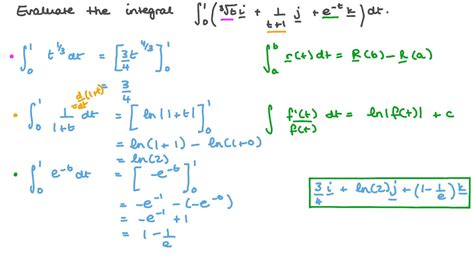 Evaluate the integral ∫₀¹(∛t i + 1/(t+1) j + e^(-t) k) dt.
• ∫₀¹ t^(1/3) dt = [3/4 t^(4/3)]₀¹
= 3/4
∫ₐᵇ r(t) dt = R(b) - R(a)
d/dt(1+t)
• ∫₀¹ 1/(1+t) dt = [ln|1+t|]₀¹
= ln(1+1) - ln(1+0)
= ln(2)
∫ f'(t)/f(t) dt = ln|f(t)| + c
• ∫₀¹ e^(-t) dt = [-e^(-t)]₀¹
= -e^(-1) - (-e^(-0))
= -e^(-1) + 1
= 1 - 1/e
3/4 i + ln(2) j + (1 - 1/e) k